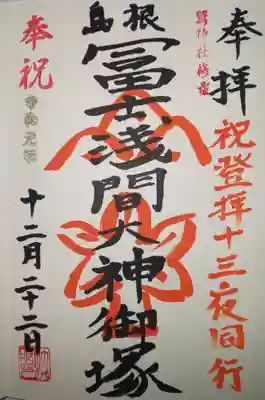 奉拝
祝登拝十三夜同行
島根
冨士浅間大神御塚
奉祝
令和元年
十二月二十二日